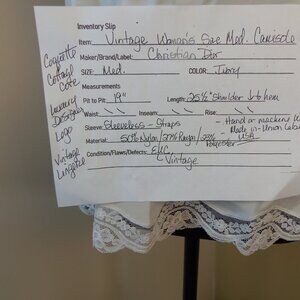 Inventory Slip
Item: Vintage Woman's Size Med. Camisole
Maker/Brand/Label: Christian Dior
SIZE: Med. COLOR: Ivory
Measurements
Pit to Pit: 19" Length: 25½" shoulder to hem
Waist: Inseam: Rise:
Sleeve: Sleeveless - Straps
- Hand or machine W
- Made in Union Label
USA
Material: 50% Nylon/27% Rayon/23%
Polyester
Condition/Flaws/Defects: EUC
Vintage
Coquette
Cottage
Core
Luxury
Designer
Logo
Vintage
Lingerie